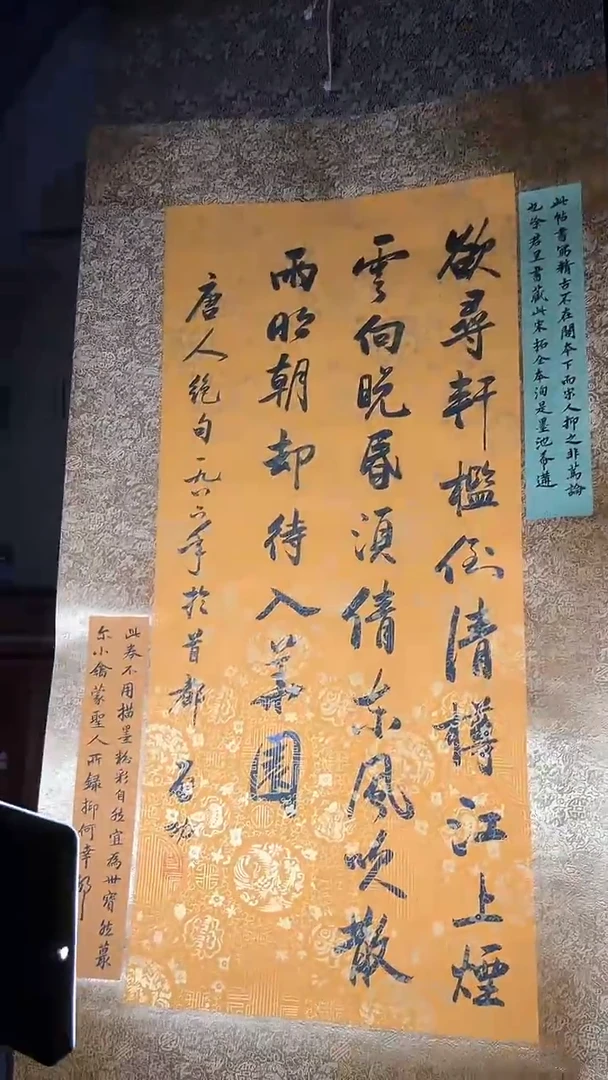 此帖書第精古不在閣本下而宋人抑之非篤論
也涂君且書藏此宋拓全本洵是墨池希遘
欲尋軒檻倒清樽江上煙
雲向晚昏須倩东風吹散
雨明朝却待入華園
唐人絕句一九八六年於首都 啟功
此券不用描墨粉彩自然宜為世寶然蕞
尔小禽蒙聖人所録抑何幸耶